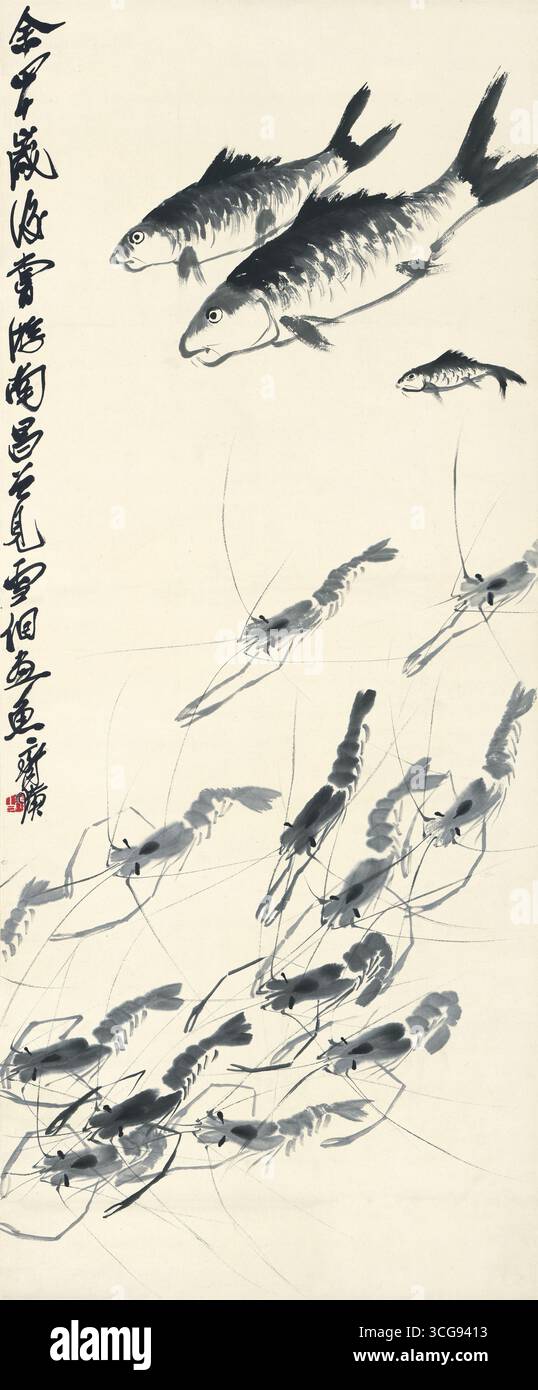 余四十歲後嘗游南昌曾見雪個畫魚齊璜
alamy
alamy
Image ID: 3CG9413
www.alamy.com